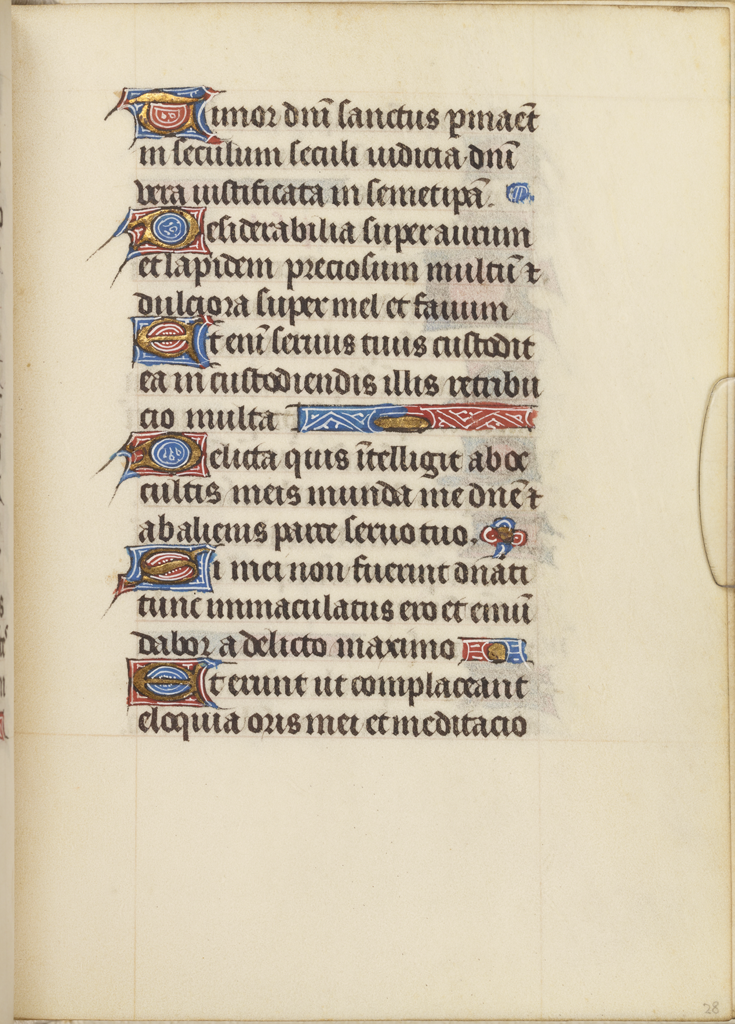 Timor dnĩ sanctus pmaẽt
in seculum seculi iudicia dnĩ
vera iustificata in semetipã.
Desiderabilia super aurum
et lapidem preciosum multũ ⁊
dulciora super mel et fauum
Et enĩ seruus tuus custodit
ea in custodiendis illis retribu
cio multa
Delicta quis ĩtelligit ab oc
cultis meis munda me dnẽ ⁊
ab alienis parce seruo tuo.
Si mei non fuerint dnãti
tunc immaculatus ero et emũ
dabor a delicto maximo
Et erunt ut complaceant
eloquia oris mei et meditacio
28